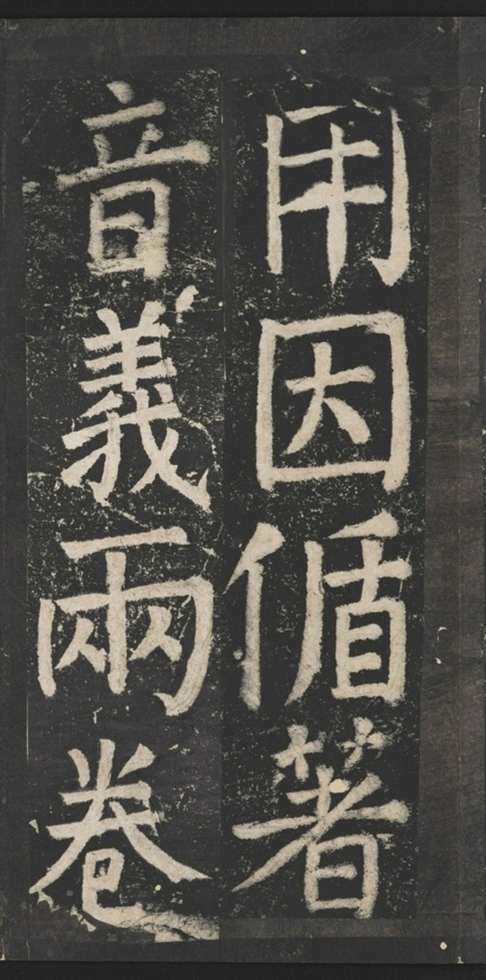 用因循著
音義兩卷